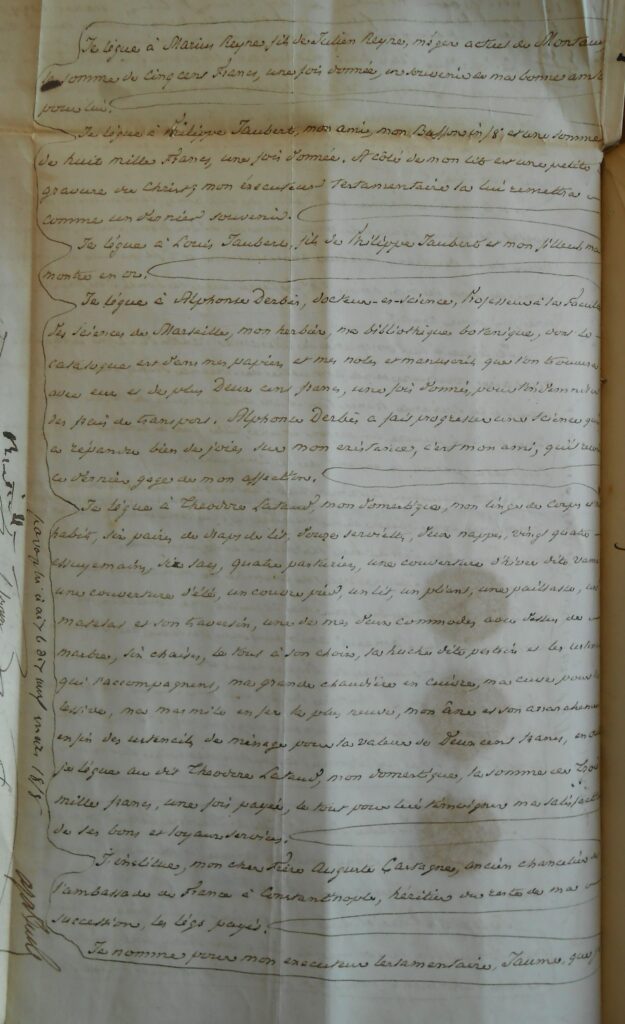 Je lègue à Marius Reyne, fils de Julien Reyne, méger actuel de
la somme de cinq cens Francs, une fois donnée, en souvenir de ma bonne
pour lui.
Je lègue à Philippe Jaubert, mon ami, mon Buffon in/8° et une somme
de huit mille Francs, une fois donnée. A côté de mon lit est une petite
gravure du Christ, mon éxécuteur testamentaire la lui remettra
comme un dernier souvenir.
Je lègue à Louis Jaubert, fils de Philippe Jaubert et mon filleul, ma
montre en or.
Je lègue à Alphonse Derbès, docteur-ès-science, Professeur à la
des sciences de Marseille, mon herbier, ma bibliothèque botanique, dont le
catalogue est dans mes papiers et mes notes et manuscrits que l'on trouvera
avec eux et de plus Deux cens francs, une fois donnés, pour
des frais de transport. Alphonse Derbès a fait progresser une science qui
a répandu bien de joies sur mon existance, c'est mon ami, qu'il
ce dernier gage de mon affection.
Je lègue à Théodore mon domestique, mon linge de corps et
habits, six paires de draps de lit, douze serviettes, deux nappes, vingt quatre
essuyemains, six sacs, quatre une couverture d'hiver dite
une couverture d'été, un couvre pied, un lit, un pliant, une paillasse, un
matelas et son traversin, une de mes deux commodes avec dessus de
marbre, six chaises, le tout à son choix, la huche dite pétrin et les
qui l'accompagnent, ma grande chaudière en cuivre, ma cuve pour la
lessive, ma marmite en fer la plus neuve, mon âne et son
enfin des ustencils de ménage pour la valeur de Deux cent francs,
je lègue au dit Théodore mon domestique, la somme de
mille francs, une fois payée, le tout pour lui témoigner ma
de ses bons et loyaux services.
J'institue, mon cher Frère Auguste Castagne, ancien chancelier de
l'ambassade de France à Constantinople, héritier du reste de ma
succession, les légs payés.
Je nomme pour mon executeur testamentaire, Jaume, que